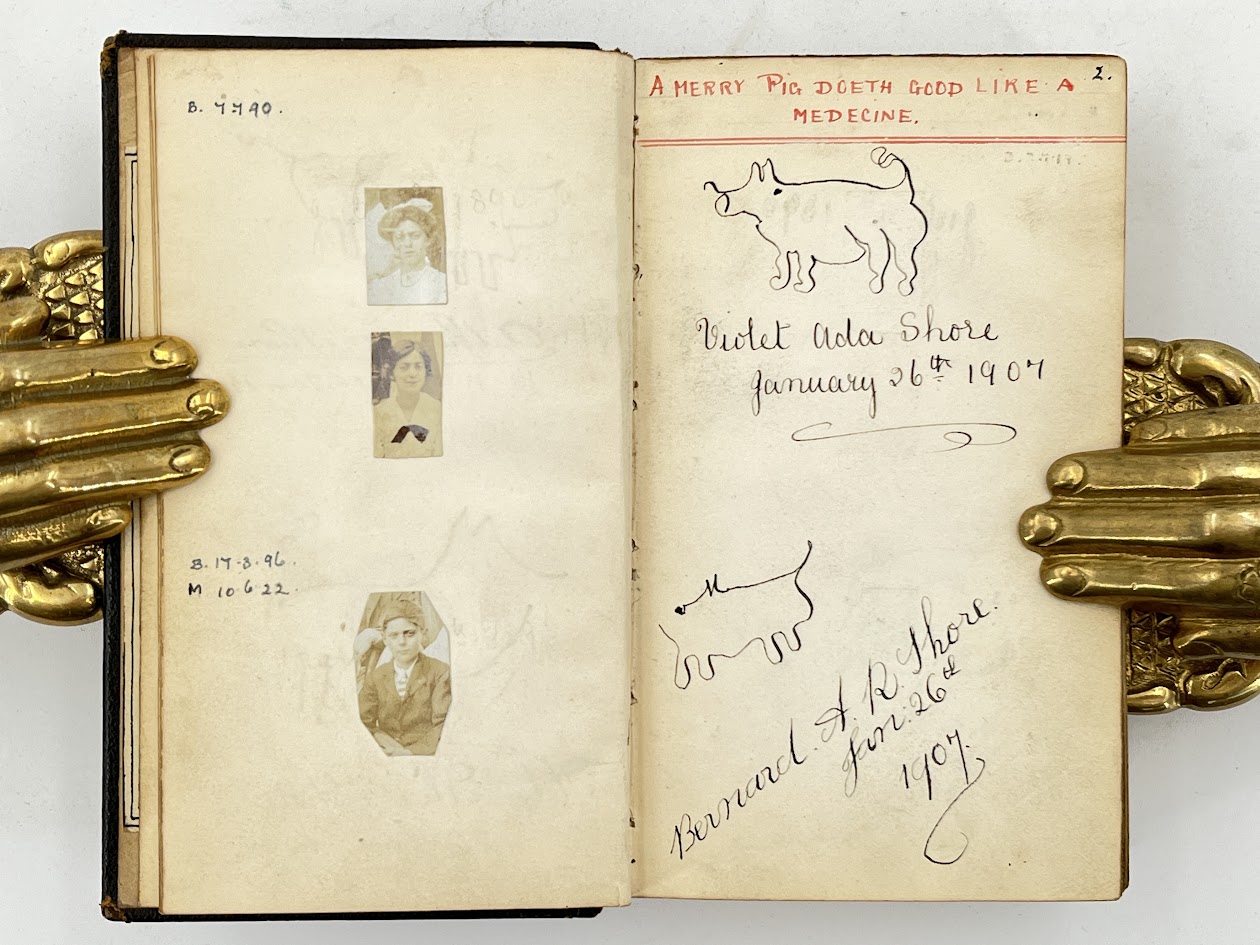 B. 7.7.90.
B. 17.3.96.
M 10.6.22.
2.
A MERRY PIG DOETH GOOD LIKE A
MEDECINE.
Violet Ada Shore
January 26th 1907
Bernard. A. R. Shore.
Jan: 26th
1907.